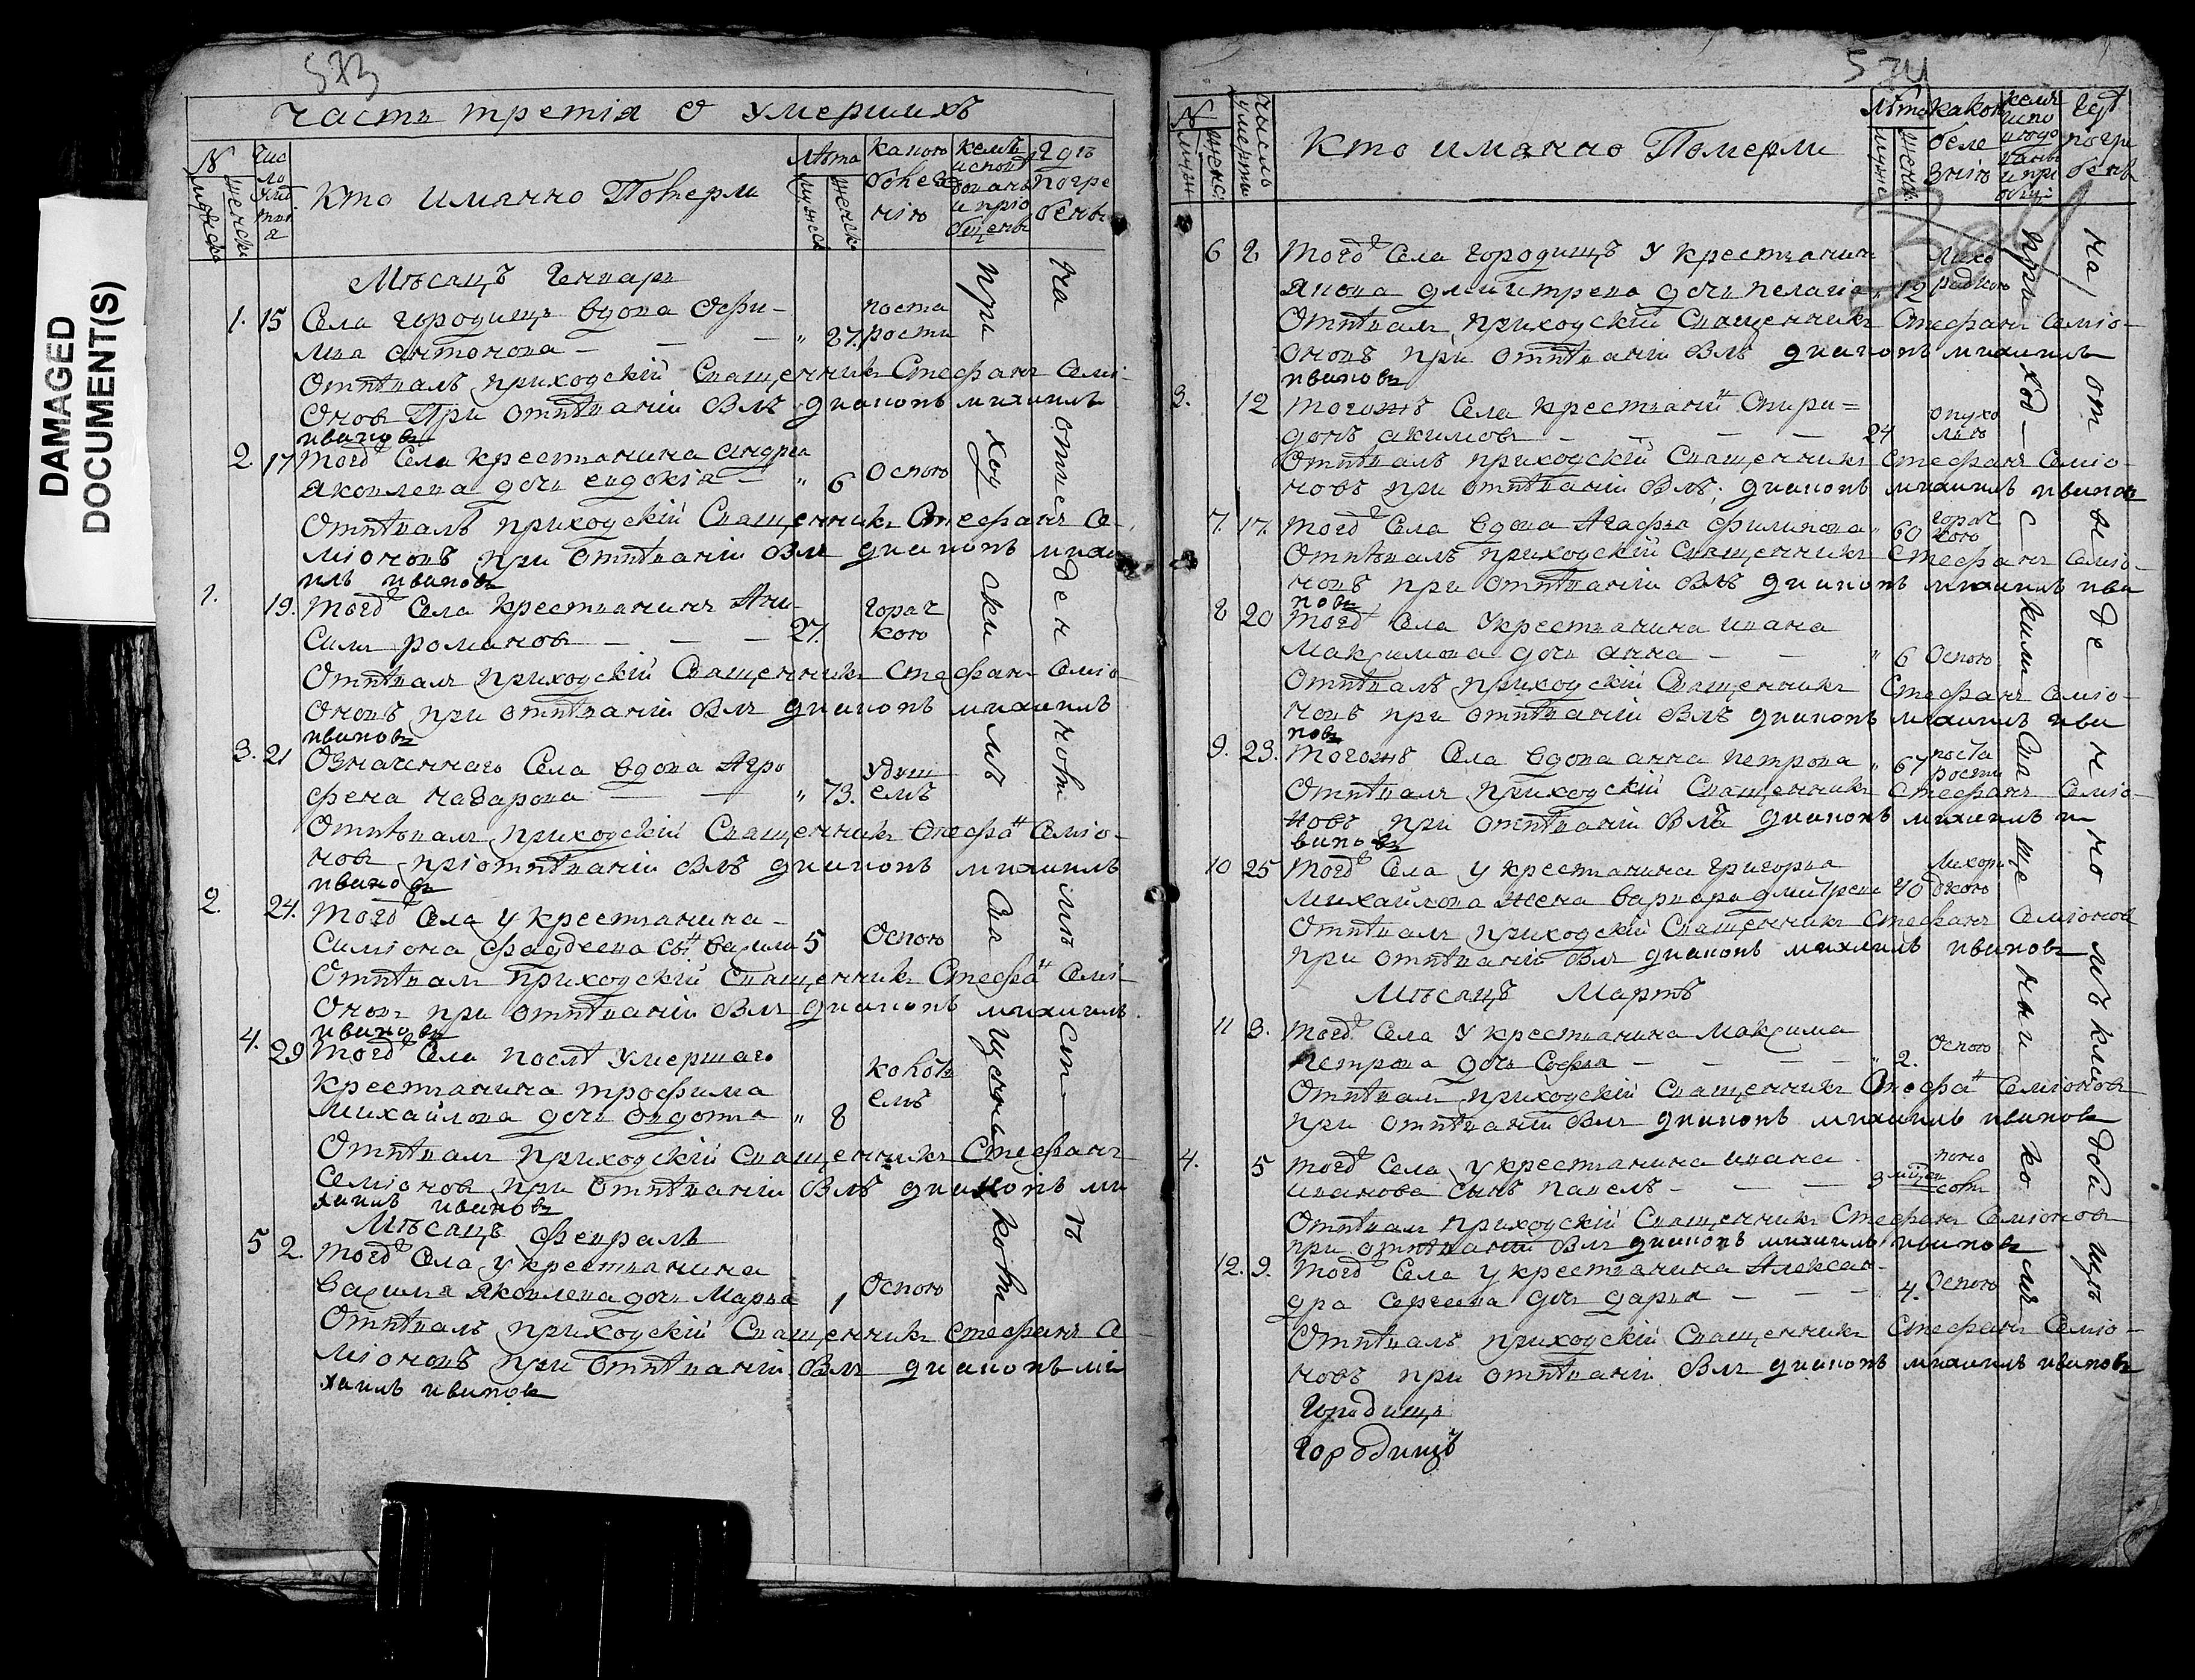 DAMAGED
DOCUMENT(S)
573
Часть третія о умершихъ
N
мужска
женска
Чис
ло
умер
шия
Кто имянно Померли
лѣта
мужеск
женска
какою
болез
нію
кемъ
испов
данъ
и прїо
бщены
Гдѣ
Погре
бены
Мѣсяцъ Генварь
1. 15 Села городищъ вдова Офи-
мия антонова — — — " 87. поста
рости
Отпѣвалъ приходскій Священникъ Стефанъ Семі-
оновъ При отпѣваніи былъ диаконъ михаилъ
ивановъ
2. 17 тогожъ Села крестьянина андрея
яковлева дочь евдокія — " 6 Оспою
Отпѣвалъ приходскій Священникъ Стефанъ Се-
міоновъ при отпѣваніи былъ диаконъ миха
илъ ивановъ
1. 19. тогожъ Села крестьянинъ Ани-
симъ романовъ — — — 27. горяч
кою
Отпѣвалъ приходскій Священникъ Стефанъ Семіо-
оновъ при отпѣваніи былъ диаконъ михаилъ
ивановъ
3. 21 Означеннаго Села вдова Агро
фена назарова — — " 73. удуш
емъ
Отпѣвалъ приходскій Священникъ Стефанъ Семіо-
новъ при отпѣваніи былъ диаконъ михаилъ
ивановъ
2. 24. тогожъ Села у крестьянина-
Симіона фаддеева сынъ василій 5 Оспою
Отпѣвалъ приходскій Священникъ Стефанъ Семі-
оновъ при отпѣваніи былъ диаконъ михаилъ
ивановъ
4. 29 тогожъ Села послѣ умершаго
крестьянина трофима
михайлова дочь евдотья " 8 колоть
емъ
Отпѣвалъ приходскій Священникъ Стефанъ
Семіоновъ при отпѣваніи былъ диаконъ ми
хаилъ ивановъ
Мѣсяцъ февраль
5 2. тогожъ Села у крестьянина
василья яковлева дочь Марья 1 Оспою
Отпѣвалъ приходскій Священникъ Стефанъ Се-
міоновъ при отпѣваніи былъ диаконъ ми
хаилъ ивановъ
приходскимъ Священникомъ
на отведенномъ мѣстѣ
N
мужс
женс:
Числь
умертвія
Кто имянно Померли
лѣта
мужс
женск:
какою
боле
знію
кемъ
испо
вѣдо
ваны
и прі
общ:
Гдѣ
погре
бены
6 2 тогожъ Села городищъ у крестьянина
якова дмитреева дочь пелагія " 12 лихо
радкою
Отпѣвалъ приходскій Священникъ Стефанъ Семіо-
оновъ при отпѣваніи былъ диаконъ михаилъ
ивановъ
3. 12 тогожъ Села крестьянинъ Спири=
донъ акимовъ — — — — 24 опухо
лью
Отпѣвалъ приходскій Священникъ Стефанъ Семіо-
новъ при отпѣваніи былъ; диаконъ михаилъ ивановъ
7. 17. тогожъ Села вдова Агафья филипова " 60 горяч
кою
Отпѣвалъ приходскій Священникъ Стефанъ Семіо-
новъ при отпѣваніи былъ диаконъ михаилъ ива
новъ
8 20 тогожъ Села у крестьянина ивана
максимова дочь анна — — " 6 Оспою
Отпѣвалъ приходскій Священникъ Стефанъ Семіо-
новъ при отпѣваніи былъ диаконъ михаилъ ива
новъ
9. 23. тогожъ Села вдова анна петрова " 67 поста
рости
Отпѣвалъ приходскій Священникъ Стефанъ Семіо-
новъ при отпѣваніи былъ диаконъ михаилъ и
вановъ
10 25 тогожъ Села у крестьянина григорья
михайлова жена варвара дмитрева 40 лихора
дкою
Отпѣвалъ приходскій Священникъ Стефанъ Семіоновъ
при отпѣваніи былъ диаконъ михаилъ ивановъ
Мѣсяцъ Мартъ
11 3. тогожъ Села у крестьянина максима
петрова дочь Софья — — — — " 2. Оспою
Отпѣвалъ приходскій Священникъ Стефанъ Семіоновъ
при отпѣваніи былъ диаконъ михаилъ ивановъ
4. 5 тогожъ Села у крестьянина ивана
иванова сынъ павелъ — — — 3
Отпѣвалъ приходскій Священникъ Стефанъ Семіоновъ
при отпѣваніи былъ диаконъ михаилъ ивановъ
12. 9. тогожъ Села у крестьянина Алексан-
дра Сергеева дочь дарья — — — 4. Оспою
Отпѣвалъ приходскій Священникъ Стефанъ Семіо-
новъ при отпѣваніи былъ диаконъ михаилъ ивановъ
Городищъ
Городищъ
приходскимъ Священникомъ
на отведенномъ кладбищѣ